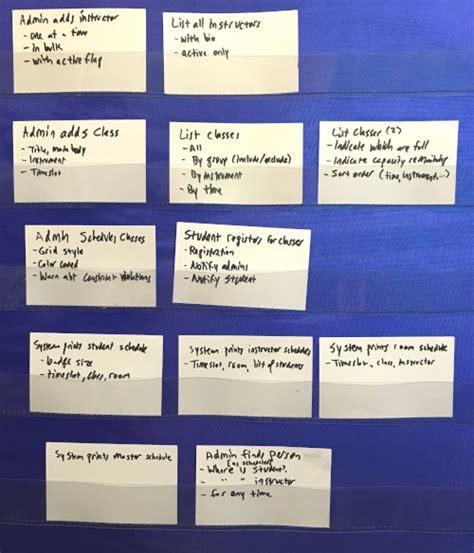 Admin adds instructor
- one at a time
- in bulk
- with active flag
List all instructors
- with bio
- active only
Admin adds Class
- Title, main body
- Instrument
- Timeslot
List classes
- All
- By group (include/exclude)
- By instrument
- By time
List classes (2)
- Indicate which are full
- Indicate capacity remaining
- Sort order (time, instrument,...)
Admin Schedules Classes
- Grid style
- Color coded
- Warn abt constraint violations
Student registers for classes
- Registration
- Notify admins
- Notify Student
System prints student schedule
- badge size
- timeslot, class, room
System prints instructor schedules
- Timeslot, room, list of students
System prints room schedule
- Timeslot, class, instructor
System prints master schedule
Admin finds person
[as scheduled]
- Where is student?
- " " instructor
- for any time